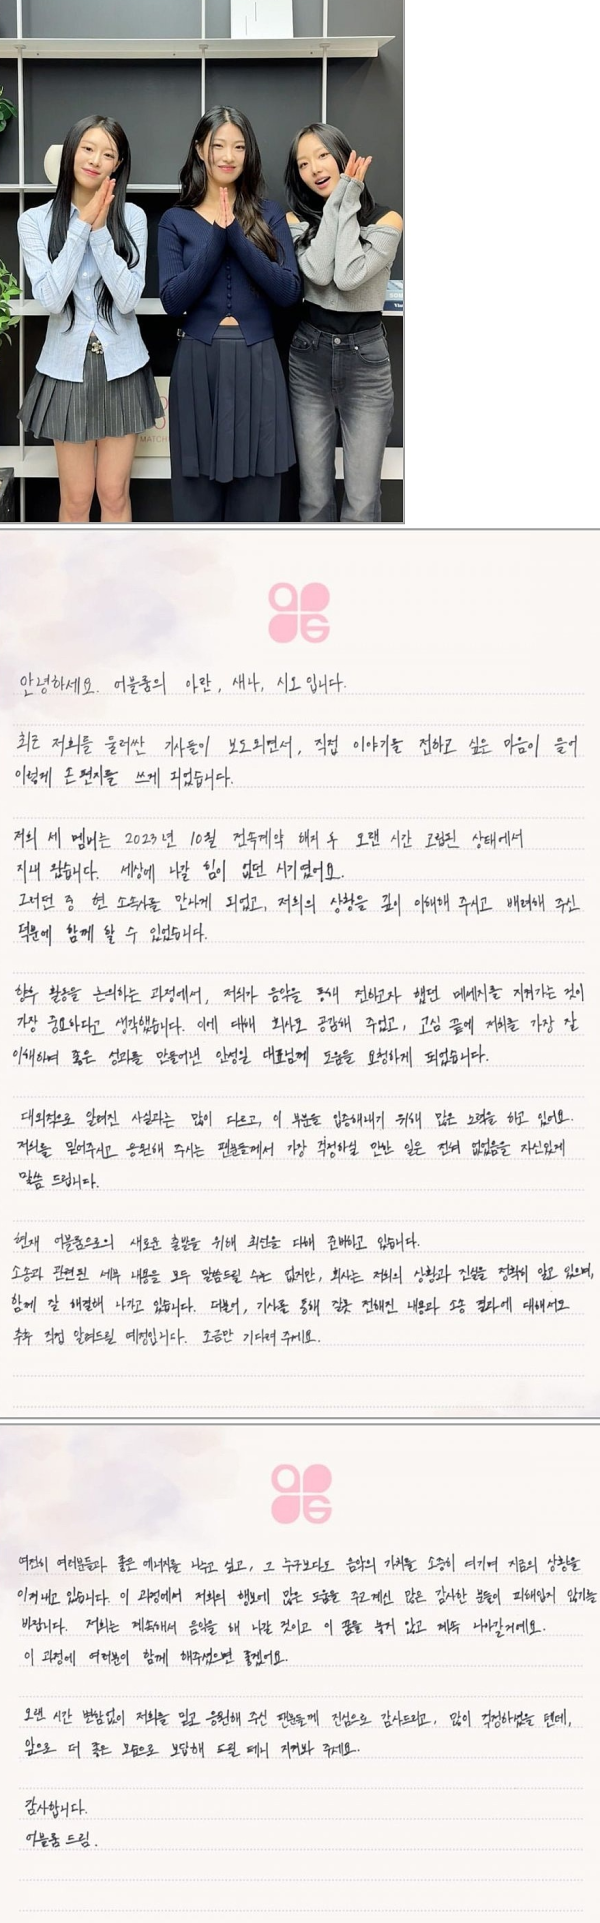 MATCH
안녕하세요. 어블룸의 아란, 새나, 시오 입니다.
최근 저희를 둘러싼 기사들이 보도되면서, 직접 이야기를 전하고 싶은 마음이 들어
이렇게 손 편지를 쓰게 되었습니다.
저희 세 멤버는 2023년 10월 전속계약 해지 후 오랜 시간 고립된 상태에서
지내 왔습니다. 세상에 나갈 힘이 없던 시기였어요.
그러던 중 현 소속사를 만나게 되었고, 저희의 상황을 깊이 이해해 주시고 배려해 주신
덕분에 함께 할 수 있었습니다.
향후 활동을 논의하는 과정에서, 저희가 음악을 통해 전하고자 했던 메세지를 지켜가는 것이
가장 중요하다고 생각했습니다. 이에 대해 회사도 공감해 주었고, 고심 끝에 저희를 가장 잘
이해하며 좋은 성과를 만들어낸 안성일 대표님께 도움을 요청하게 되었습니다.
대외적으로 알려진 사실과는 많이 다르고, 이 부분을 입증해내기 위해 많은 노력을 하고 있어요.
저희를 믿어주시고 응원해 주시는 팬분들께서 가장 걱정하실 만한 일은 전혀 없었음을 자신있게
말씀 드립니다.
현재 어블룸으로의 새로운 출발을 위해 최선을 다해 준비하고 있습니다.
소송과 관련된 세부 내용을 모두 말씀드릴 수는 없지만, 회사는 저희의 상황과 진실을 정확히 알고 있으며,
함께 잘 해결해 나가고 있습니다. 더불어, 기사를 통해 잘못 전해진 내용과 소송 결과에 대해서도
추후 직접 알려드릴 예정입니다. 조금만 기다려 주세요.
여전히 여러분들과 좋은 에너지를 나누고 싶고, 그 누구보다도 음악의 가치를 소중히 여기며 지금의 상황을
이겨내고 있습니다. 이 과정에서 저희의 행보에 많은 도움을 주고계신 많은 감사한 분들이 피해입지 않기를
바랍니다. 저희는 계속해서 음악을 해 나갈 것이고 이 꿈을 놓지 않고 계속 나아갈거에요.
이 과정에 여러분이 함께 해주셨으면 좋겠어요.
오랜 시간 변함없이 저희를 믿고 응원해 주신 팬분들께 진심으로 감사드리고, 많이 걱정하셨을 텐데,
앞으로 더 좋은 모습으로 보답해 드릴 테니 지켜봐 주세요.
감사합니다.
어블룸 드림.